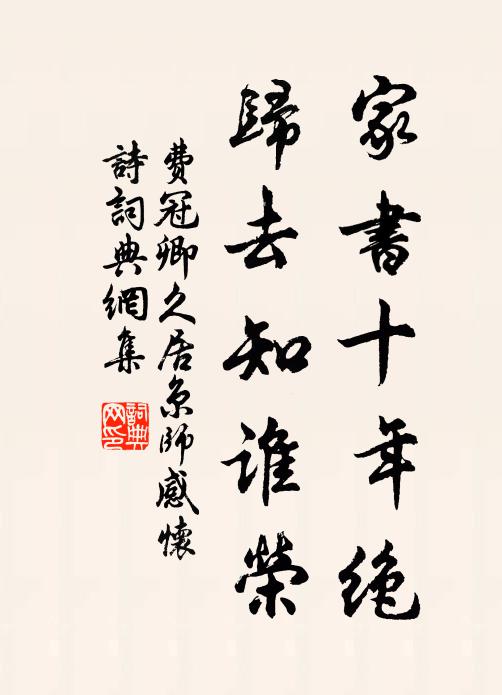 家書十年絶
歸去知誰榮
費冠卿久居京師感懷
詩詞典網集
詞典網印